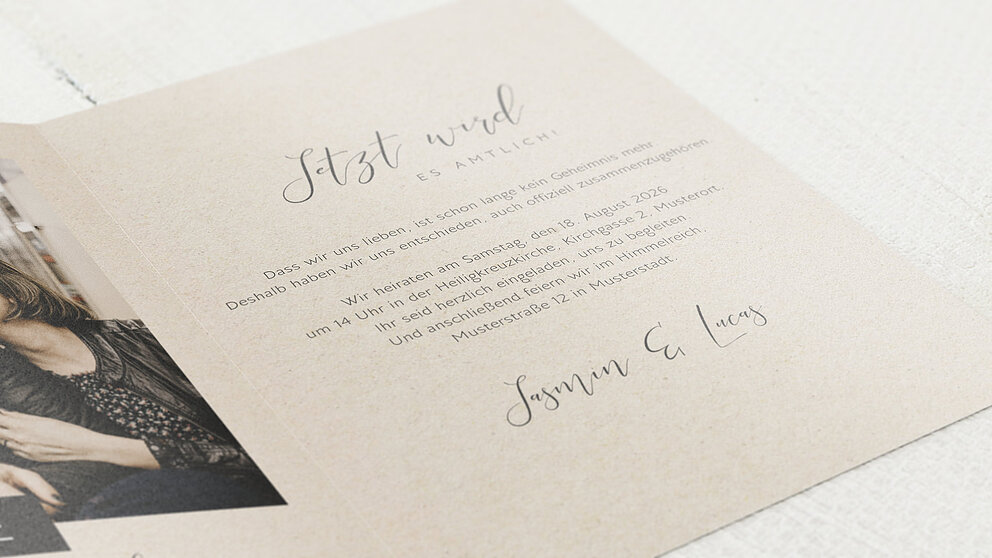 Jetzt wird
ES AMTLICH!
Dass wir uns lieben, ist schon lange kein Geheimnis mehr
Deshalb haben wir uns entschieden, auch offiziell zusammenzugehören
Wir heiraten am Samstag, den 18. August 2026
um 14 Uhr in der Heiligkreuzkirche, Kirchgasse 2, Musterort.
Ihr seid herzlich eingeladen, uns zu begleiten
Und anschließend feiern wir im Himmelreich,
Musterstraße 12 in Musterstadt.
Jasmin & Lucas